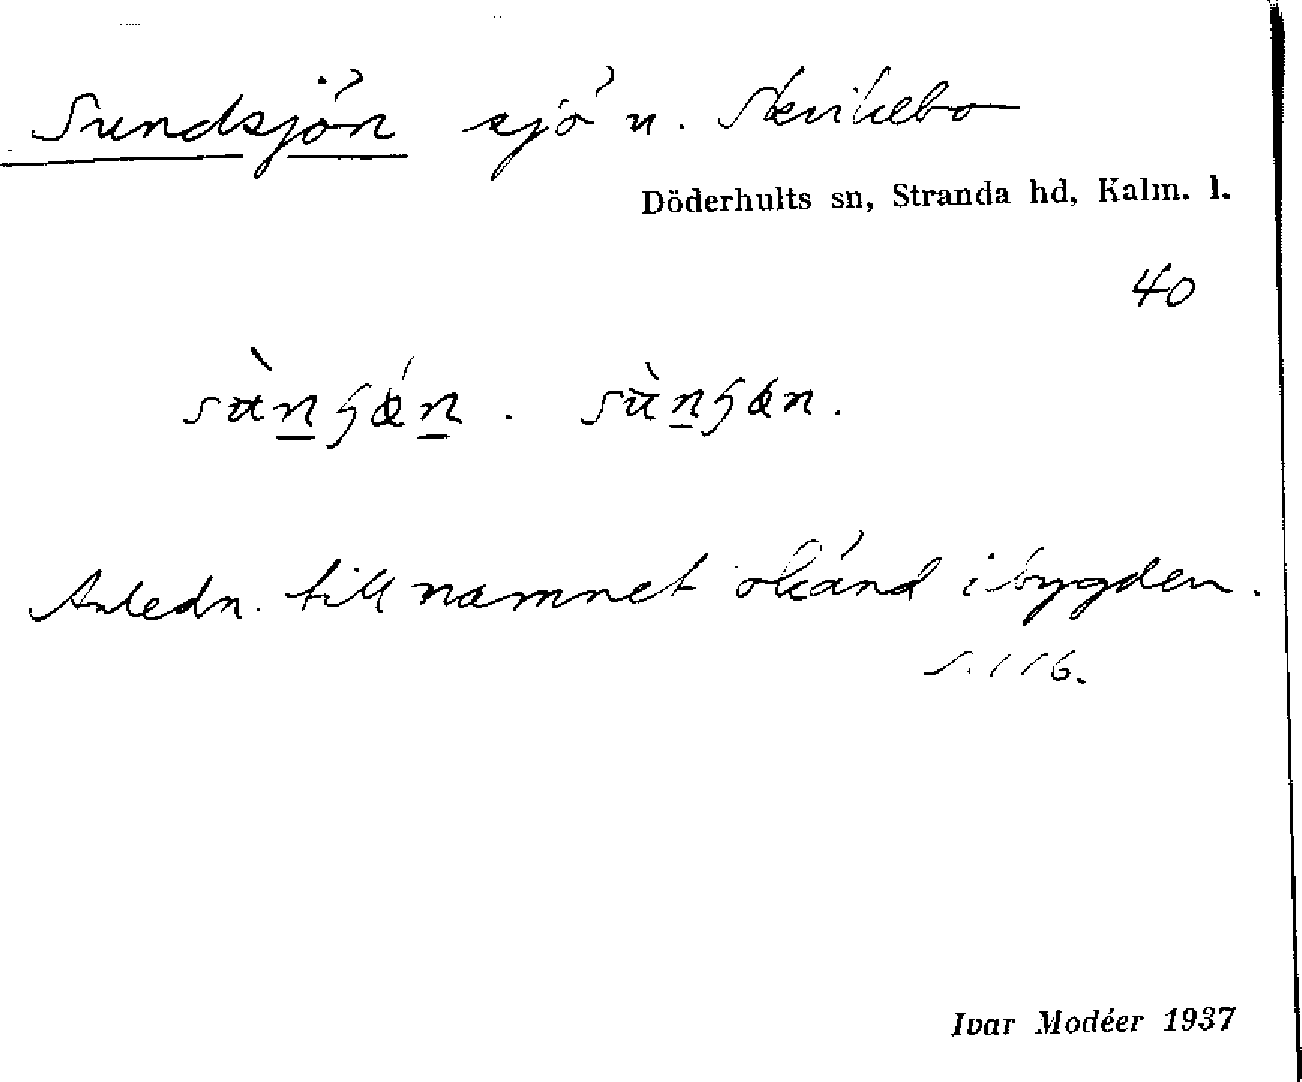 Sundsjön sjö n. Skrikebo
Döderhults sn, Stranda hd, Kalm. l.
40
Anledn. till namnet okänd i bygden.
s. 116.
Ivar Modéer 1937